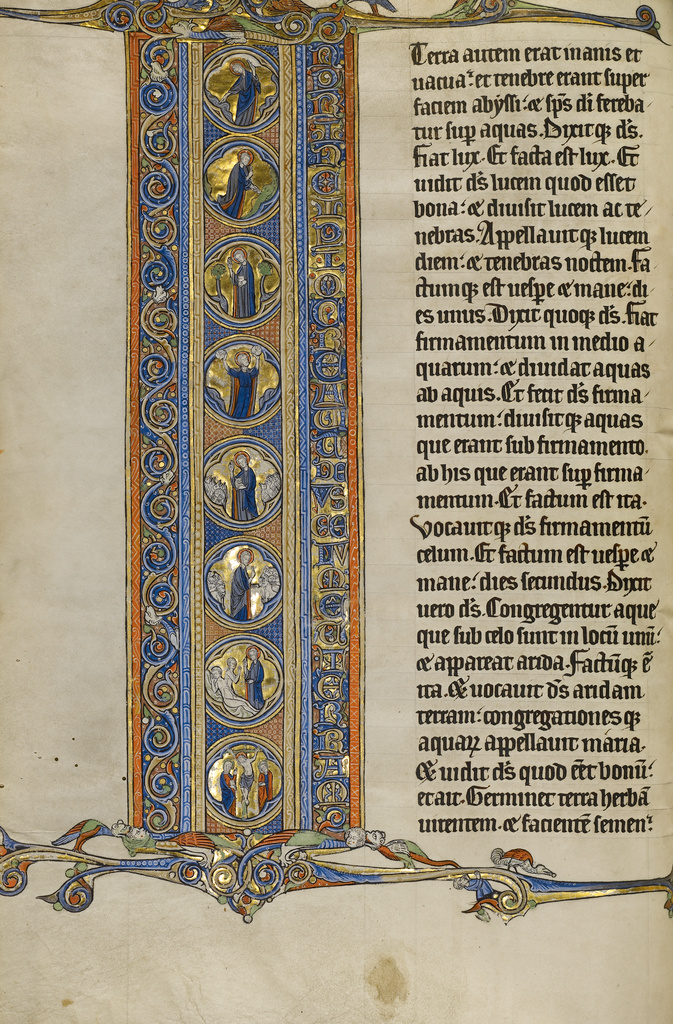 IN PRINCIPIO CREAVIT DEUS CELUM ET TERRAM
Terra autem erat inanis et
uacua: et tenebre erant super
faciem abyssi: et sps di fereba-
tur sup aquas. Dixitqꝫ ds.
fiat lux. Et facta est lux. Et
uidit ds lucem quod esset
bona: et diuisit lucem ac te-
nebras. Appellauitqꝫ lucem
diem: et tenebras noctem. fa
ctumqꝫ est uespe et mane: di
es unus. Dixit quoqꝫ ds. fiat
firmamentum in medio a-
quarum: et diuidat aquas
ab aquis. Et fecit ds firma-
mentum: diuisitqꝫ aquas
que erant sub firmamento.
ab his que erant sup firma-
mentum. Et factum est ita.
Vocauitqꝫ ds firmamentū
celum. Et factum est uespe et
mane: dies secundus. Dixit
uero ds. Congregentur aque
que sub celo sunt in locū unū:
et appareat arida. factūqꝫ ē
ita. Et uocauit ds aridam
terram: congregationesqꝫ
aquaꝝ appellauit maria.
Et uidit ds quod eēt bonū:
et ait. Germinet terra herbā
uirentem. et facientē semen: